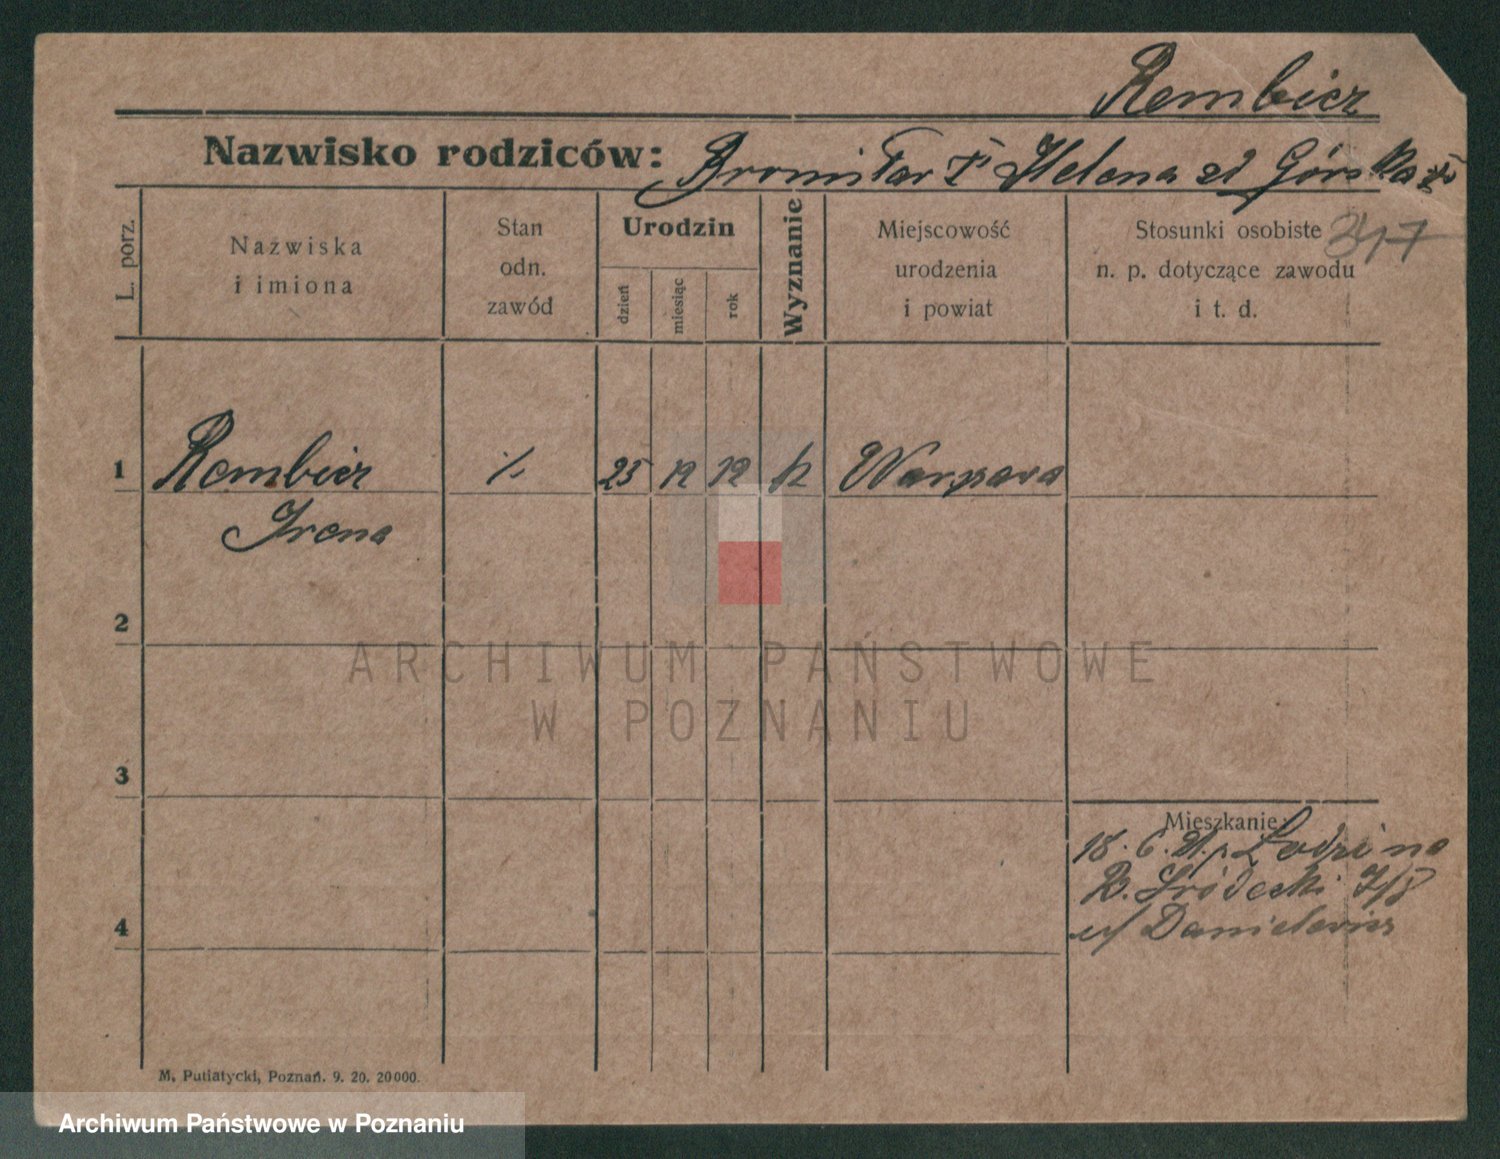 Rembicz
Nazwisko rodziców: Bronisław i Helena zd Górska
L. porz.
Nazwiska
i imiona
Stan
odn.
zawód
Urodzin
dzień
miesiąc
rok
Wyznanie
Miejscowość
urodzenia
i powiat
Stosunki osobiste
n. p. dotyczące zawodu
i t. d.
1 Rembicz 25 12 12 k Warszawa
Irena
2
ARCHIWUM PAŃSTWOWE
W POZNANIU
3
Mieszkanie:
18. 6. 21. Łodzi na
B. Śródecki 7/8
u/ Danielewicz
4
M. Putiatycki, Poznań. 9. 20. 20000.
Archiwum Państwowe w Poznaniu